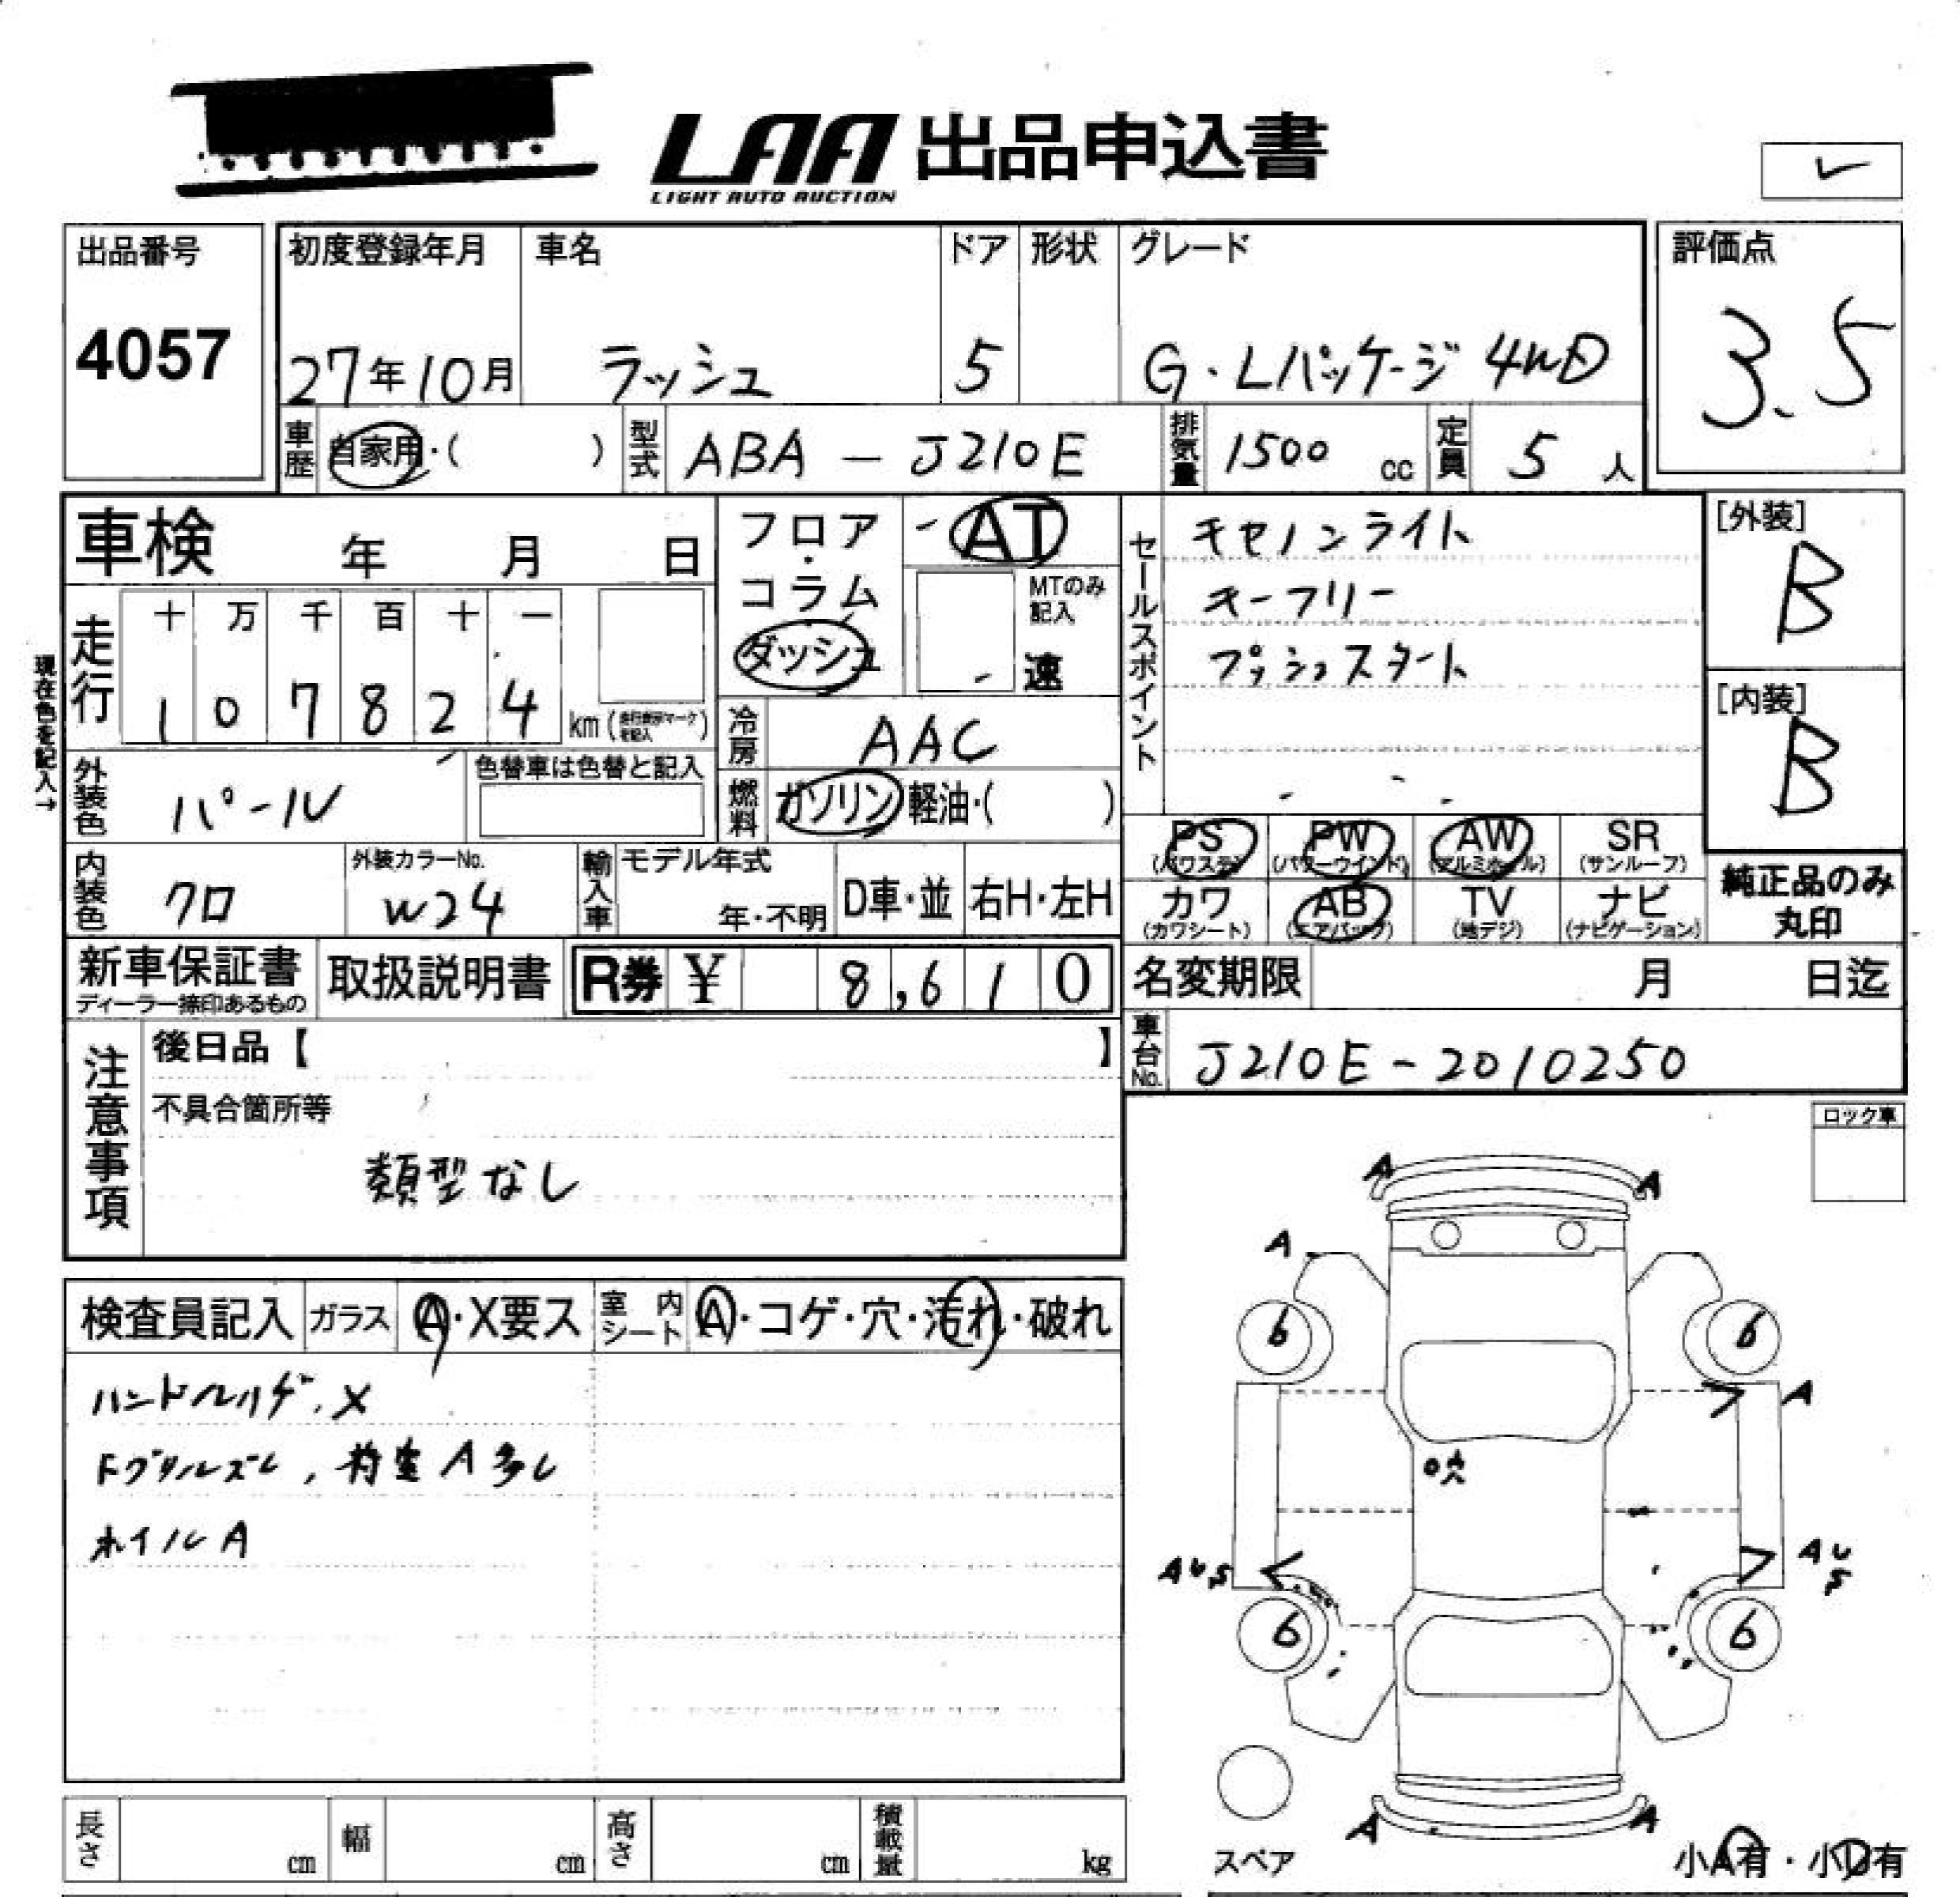 LAA 出品申込書
LIGHT AUTO AUCTION
レ
出品番号
4057
初度登録年月
27年10月
車名
ラッシュ
ドア
5
形状
グレード
G・Lパッケージ 4WD
評価点
3.5
車歴
自家用・( )
型式
ABA - J210E
排気量
1500 cc
定員
5 人
車検 年 月 日
フロア・コラム
ダッシュ
AT
MTのみ記入
速
セールスポイント
キセノンライト
キーフリー
プッシュスタート
[外装]
B
[内装]
B
現在色を記入→
走行
十 万 千 百 十 一
1 0 7 8 2 4
km(走行表示マークを記入)
冷房
AAC
外装色
パール
色替車は色替と記入
燃料
ガソリン・軽油・( )
内装色
クロ
外装カラーNo.
W24
輸入車
モデル年式
年・不明
D車・並
右H・左H
PS
(パワステ)
PW
(パワーウインド)
AW
(アルミホイール)
SR
(サンルーフ)
カワ
(カワシート)
AB
(エアバッグ)
TV
(地デジ)
ナビ
(ナビゲーション)
純正品のみ
丸印
新車保証書
ディーラー捺印あるもの
取扱説明書
R券 ¥ 8,610
名変期限 月 日迄
車台No.
J210E-2010250
注意事項
後日品【 】
不具合箇所等
類型なし
ロック車
検査員記入
ガラス
A・X要ス
室内シート
A・コゲ・穴・汚れ・破れ
ハンドルリダ.X
ホイルA
A
A
A
6
6
A
穴
AUS
AUS
6
6
A
A
スペア
小A有・小D有
長さ cm
幅 cm
高さ cm
積載量 kg